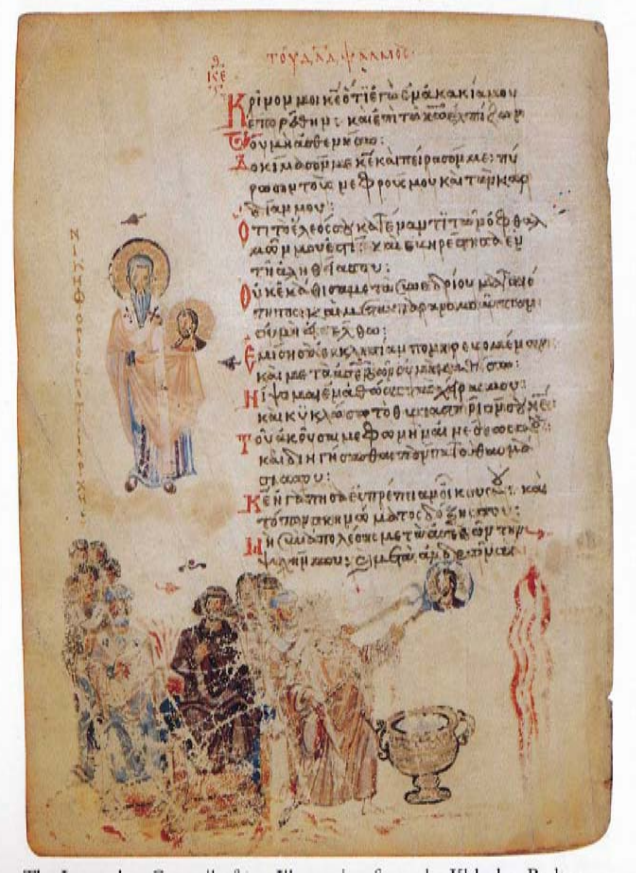 ΚΕ
τοῦ δαδ ψαλμος
Κρῖνόν μοι κε ὅτι ἐγὼ ἐν ἀκακία μου
ἐπορεύθην· καὶ ἐπὶ τω κω ἐλπίζων
οὐ μὴ ἀσθενήσω:
Δοκίμασόν με κε καὶ πείρασόν με· πύ
ρωσον τοὺς νεφρούς μου καὶ τὴν καρ
δίαν μου:
Ὅτι τὸ ἔλεός σου κατέναντι τῶν ὀφθαλ
μῶν μου ἐστί· καὶ εὐηρέστησα ἐν
τῆ ἀληθεία σου:
Οὐκ ἐκάθισα μετὰ συνεδρίου ματαιό
τητος· καὶ μετὰ παρανομούντων
οὐ μὴ εἰσέλθω:
Ἐμίσησα ἐκκλησίαν πονηρευομένων·
καὶ μετὰ ἀσεβῶν οὐ μὴ καθίσω:
Νίψομαι ἐν ἀθώοις τὰς χεῖρας μου·
καὶ κυκλώσω τὸ θυσιαστήριόν σου κε:
Τοῦ ἀκοῦσαι με φωνῆς αἰνέσεώς σου
καὶ διηγήσασθαι πάντα τὰ θαυμά
σιά σου:
Κε ἠγάπησα εὐπρέπειαν οἴκου σου· καὶ
τόπον σκηνώματος δόξης σου:
Μὴ συναπολέσης μετὰ ἀσεβῶν τὴν
ψυχήν μου· καὶ μετὰ ἀνδρῶν
ΝΙΚΗΦΟΡΟΣ ΠΑΤΡΙΑΡΧΗΣ